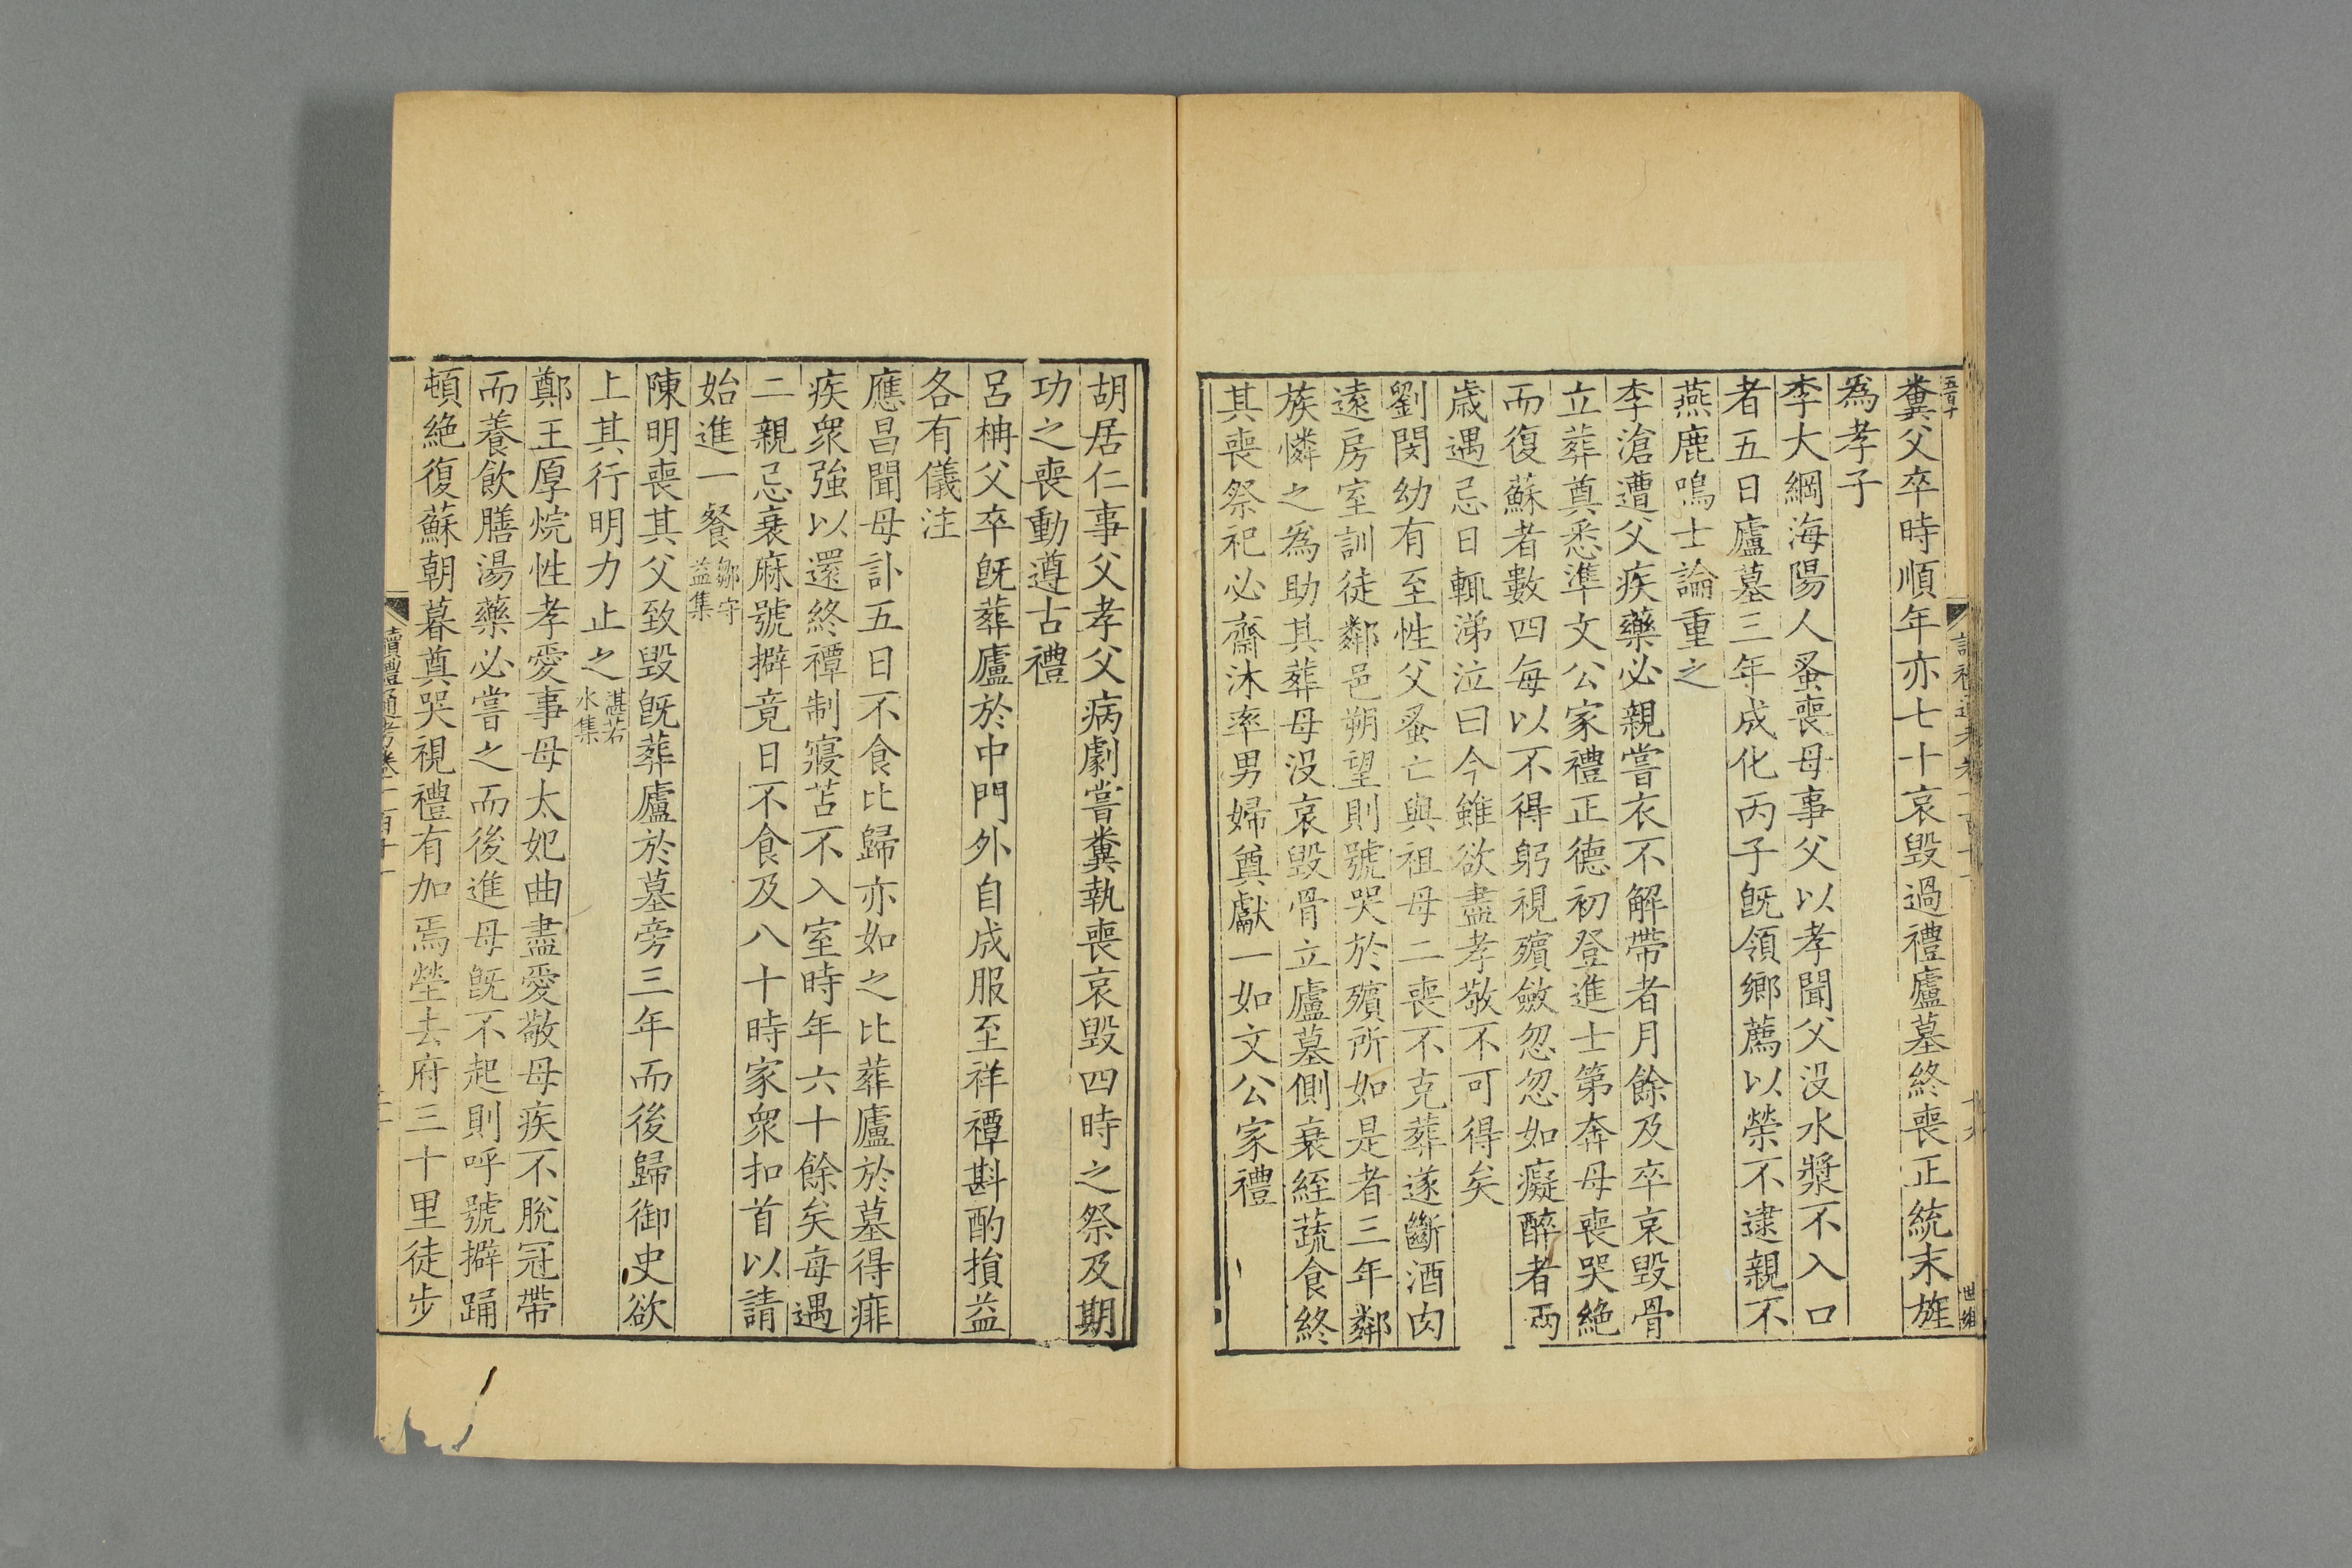 糞父卒時順年亦七十哀毀過禮廬墓終喪正統末旌
為孝子
李大綱海陽人蚤喪母事父以孝聞父没水漿不入口
者五日廬墓三年成化丙子旣領鄉薦以榮不逮親不
燕鹿鳴士論重之
李滄遭父疾藥必親嘗衣不解帶者月餘及卒哀毀骨
立葬奠悉準文公家禮正德初登進士第奔母喪哭絶
而復蘇者數四每以不得躬視殯斂忽忽如癡醉者兩
歳遇忌日輒涕泣曰今雖欲盡孝敬不可得矣
劉閔幼有至性父蚤亡與祖母二喪不克葬遂斷酒肉
遠房室訓徒鄰邑朔望則號哭於殯所如是者三年鄰
族憐之為助其葬母没哀毀骨立廬墓側衰絰蔬食終
其喪祭祀必齋沐率男婦奠獻一如文公家禮
胡居仁事父孝父病劇嘗糞執喪哀毀四時之祭及期
功之喪動遵古禮
呂柟父卒旣葬廬於中門外自成服至祥禫斟酌損益
各有儀注
應昌聞母訃五日不食比歸亦如之比葬廬於墓得痱
疾衆強以還終禫制寢苫不入室時年六十餘矣每遇
二親忌衰麻號擗竟日不食及八十時家衆扣首以請
始進一餐鄒守益集
陳明喪其父致毀旣葬廬於墓旁三年而後歸御史欲
上其行明力止之湛若水集
鄭王厚烷性孝愛事母太妃曲盡愛敬母疾不脫冠帶
而養飲膳湯藥必嘗之而後進母旣不起則呼號擗踊
頓絶復蘇朝暮奠哭視禮有加焉塋去府三十里徒步
讀禮通考卷一百十一